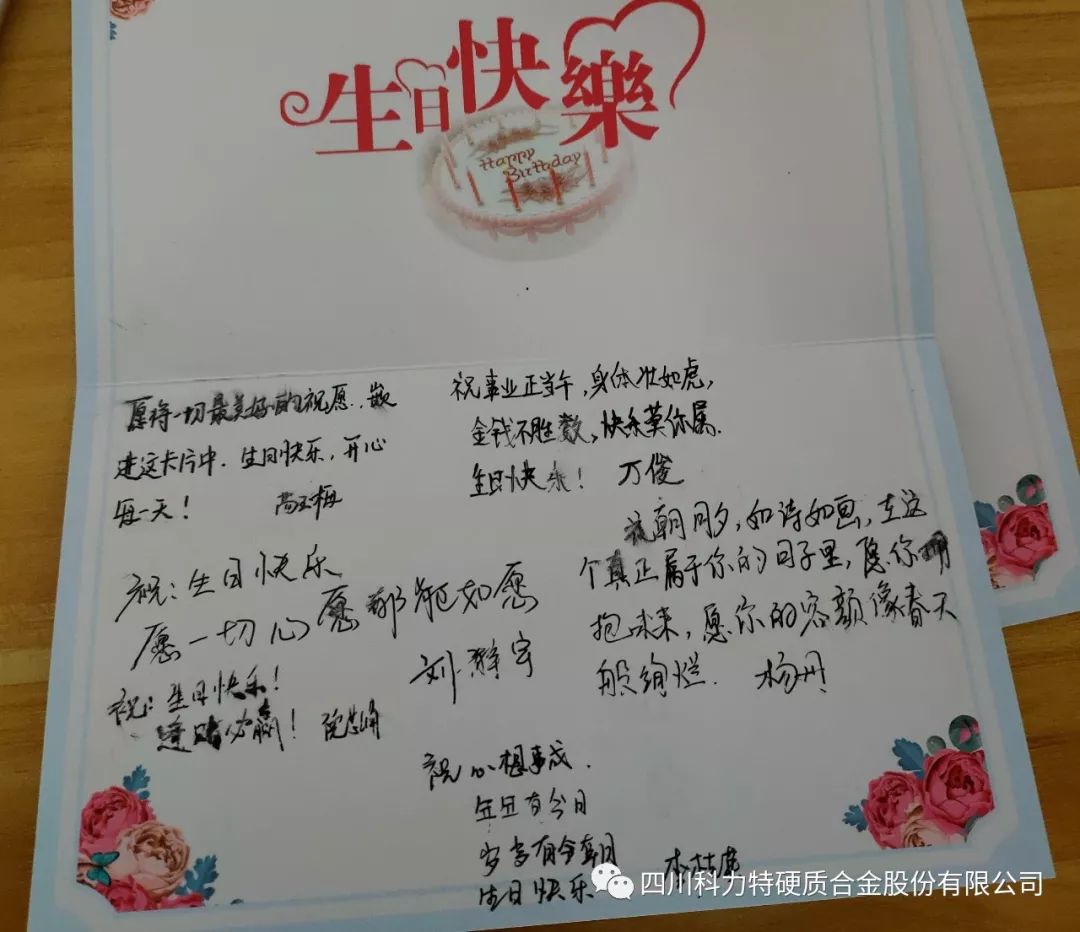 生日快樂
Happy
Birthday
愿将一切最美好的祝愿，嵌
进这卡片中．生日快乐，开心
每一天！
祝事业正当午，身体壮如虎，
金钱不胜数，快乐莫你属．
生日快乐！ 万俊
祝：生日快乐
愿一切心愿都能如愿
祝：生日快乐！
逢赌必赢！
花朝月夕，如诗如画，在这
个真正属于你的日子里，愿你拥
抱未来，愿你的容颜像春天
般绚烂． 杨丹
祝心想事成．
年年有今日
岁岁有今朝
生日快乐
四川科力特硬质合金股份有限公司